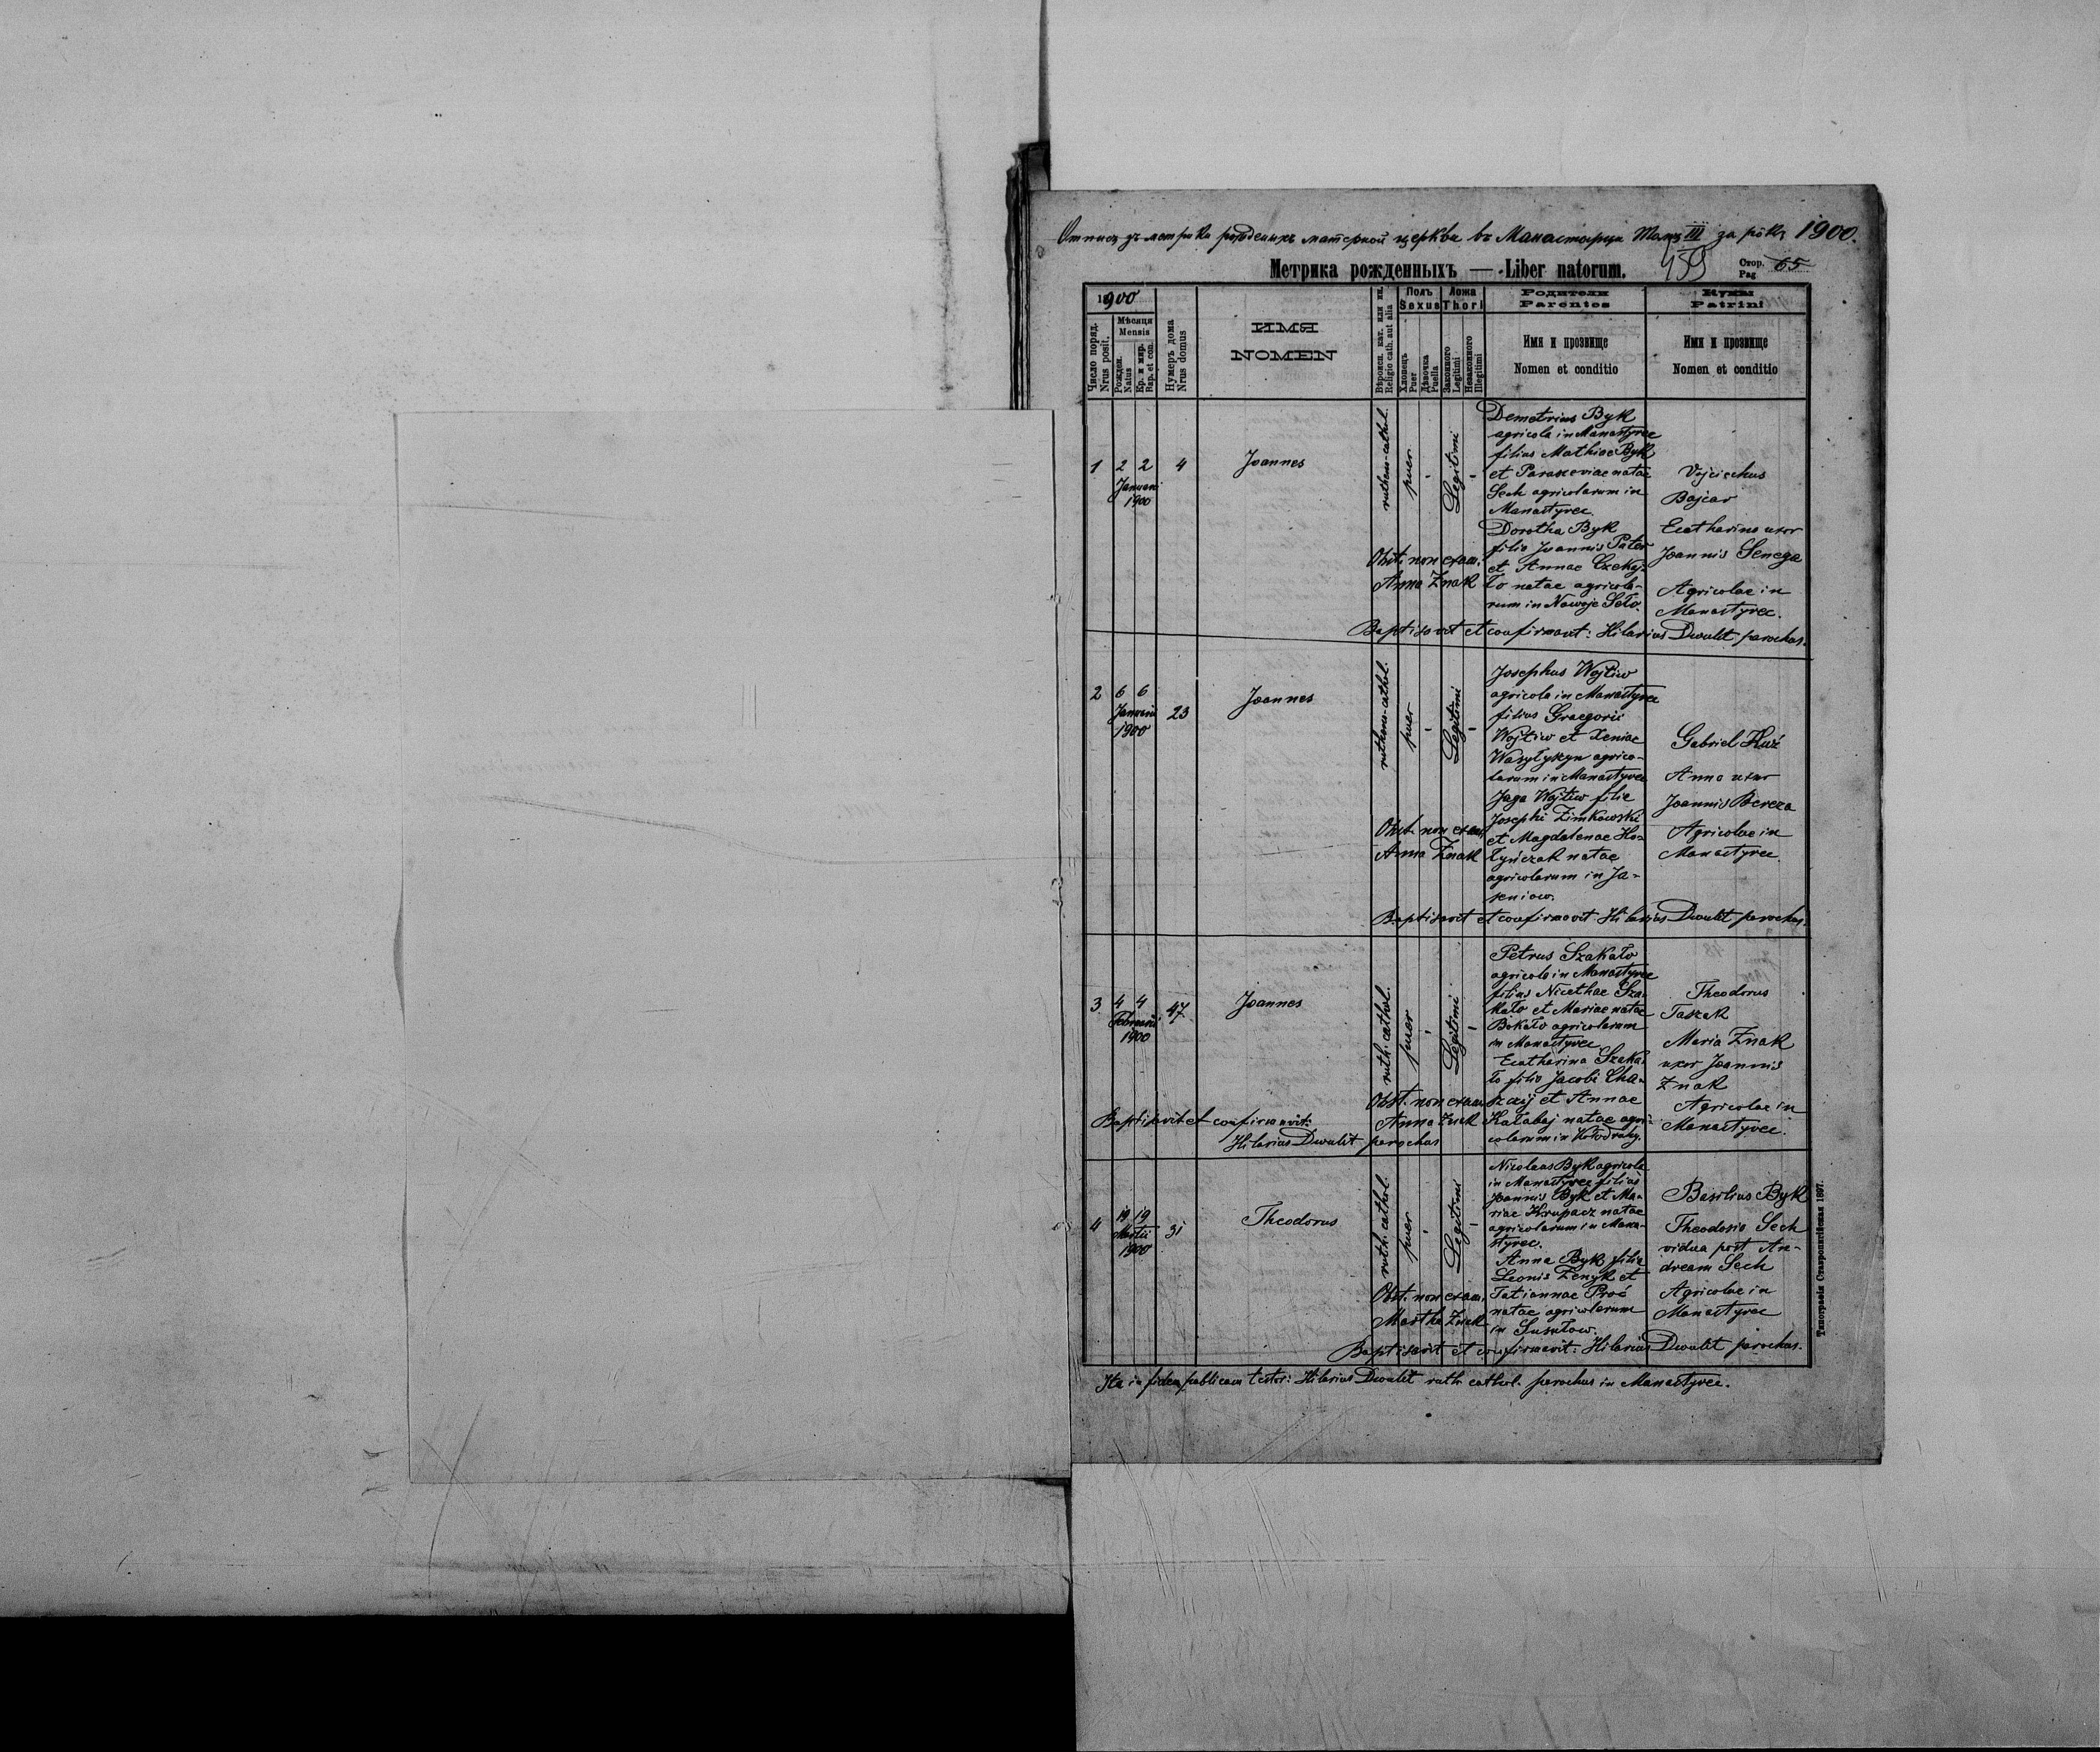 Отпись зъ метрики рожденыхъ матерной церкви въ Манастырци Томъ III за рôкъ 1900.
Метрика рожденныхъ — Liber natorum.
459
Стор. Pag 65
1900
Число поряд. Nrus posit.
Мѣсяця Mensis
Рожден. Natus
Кр. и мѵр. Bap. et con.
Нумеръ дома Nrus domus
ИМЯ
NOMEN
Вѣроисп. кат. или ин. Religio cath. aut alia
Полъ
Sexus
Хлопець Puer
Дѣвочка Puella
Ложа
Thori
Законного Legitimi
Незаконного Illegitimi
Родители
Parentes
Имя и прозвище
Nomen et conditio
Кумы
Patrini
Имя и прозвище
Nomen et conditio
1
2 2
Januarii
1900
4
Joannes
ruthen-cathol.
puer
-
Legitimi
-
Demetrius Byk
agricola in Manastyrec
filius Mathiae Byk
et Parasceviae natae
Sech agricolarum in
Manastyrec.
Dorotha Byk
filia Joannis Pater
et Annae Czekaj-
ło natae agricola-
rum in Nowoje Seło.
Obst. non exam.
Anna Znak
Vojciechus
Bojcar
Ecatharina uxor
Joannis Senega
Agricolae in
Manastyrec.
Baptisavit et confirmavit: Hilarius Dwulit parochus.
2
6 6
Januarii
1900
23
Joannes
ruthen-cathol.
puer
-
Legitimi
-
Josephus Wojtiw
agricola in Manastyrec
filius Graegorii
Wojtiw et Xeniae
Wasyłykyn agrico-
larum in Manastyrec
Jaga Wojtiw filia
Josephi Zimkowski
et Magdalenae Ho-
łyńczak natae
agricolarum in Ja-
seniow.
Obst. non exam.
Anna Znak
Gabriel Huź
Anna uxor
Joannis Bereza
Agricolae in
Manastyrec.
Baptisavit et confirmavit: Hilarius Dwulit parochus.
3
4 4
Februarii
1900
47
Joannes
ruth. cathol.
puer
-
Legitimi
-
Petrus Szakało
agricola in Manastyrec
filius Nicethae Sza-
kało et Mariae natae
Bokało agricolarum
in Manastyrec
Ecatharina Szaka-
ło filia Jacobi Cha-
szczij et Annae
Hałabaj natae agri-
colarum in Kołodruby.
Obst. non exam.
Anna Znak
Theodorus
Taszak
Maria Znak
uxor Joannis
Znak
Agricolae in
Manastyrec.
Baptisavit et confirmavit:
Hilarius Dwulit parochus
4
19 19
Martii
1900
31
Theodorus
ruth. cathol.
puer
-
Legitimi
-
Nicolaus Byk agricola
in Manastyrec filius
Joannis Byk et Ma-
riae Hrupacz natae
agricolarum in Mana-
styrec.
Anna Byk filia
Leonis Zenyk et
Tatiannae Proć
natae agricolarum
in Susułow.
Obst. non exam.
Martha Znak
Basilius Byk
Theodosia Sech
vidua post An-
dream Sech
Agricolae in
Manastyrec
Baptisavit et confirmavit: Hilarius Dwulit parochus.
Типографія Ставропигійская 1897.
Ita in fidem publicam testor: Hilarius Dwulit ruth. cathol. parochus in Manastyrec.